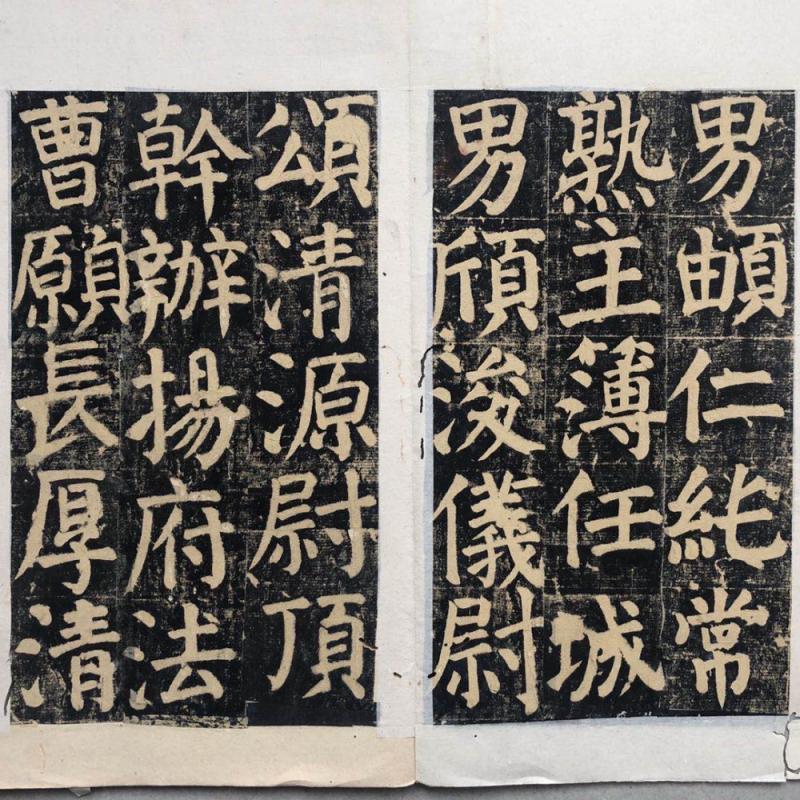 男頔仁純常
熟主簿任城
男頎浚儀尉
頌清源尉頂
幹辦揚府法
曹願長厚清